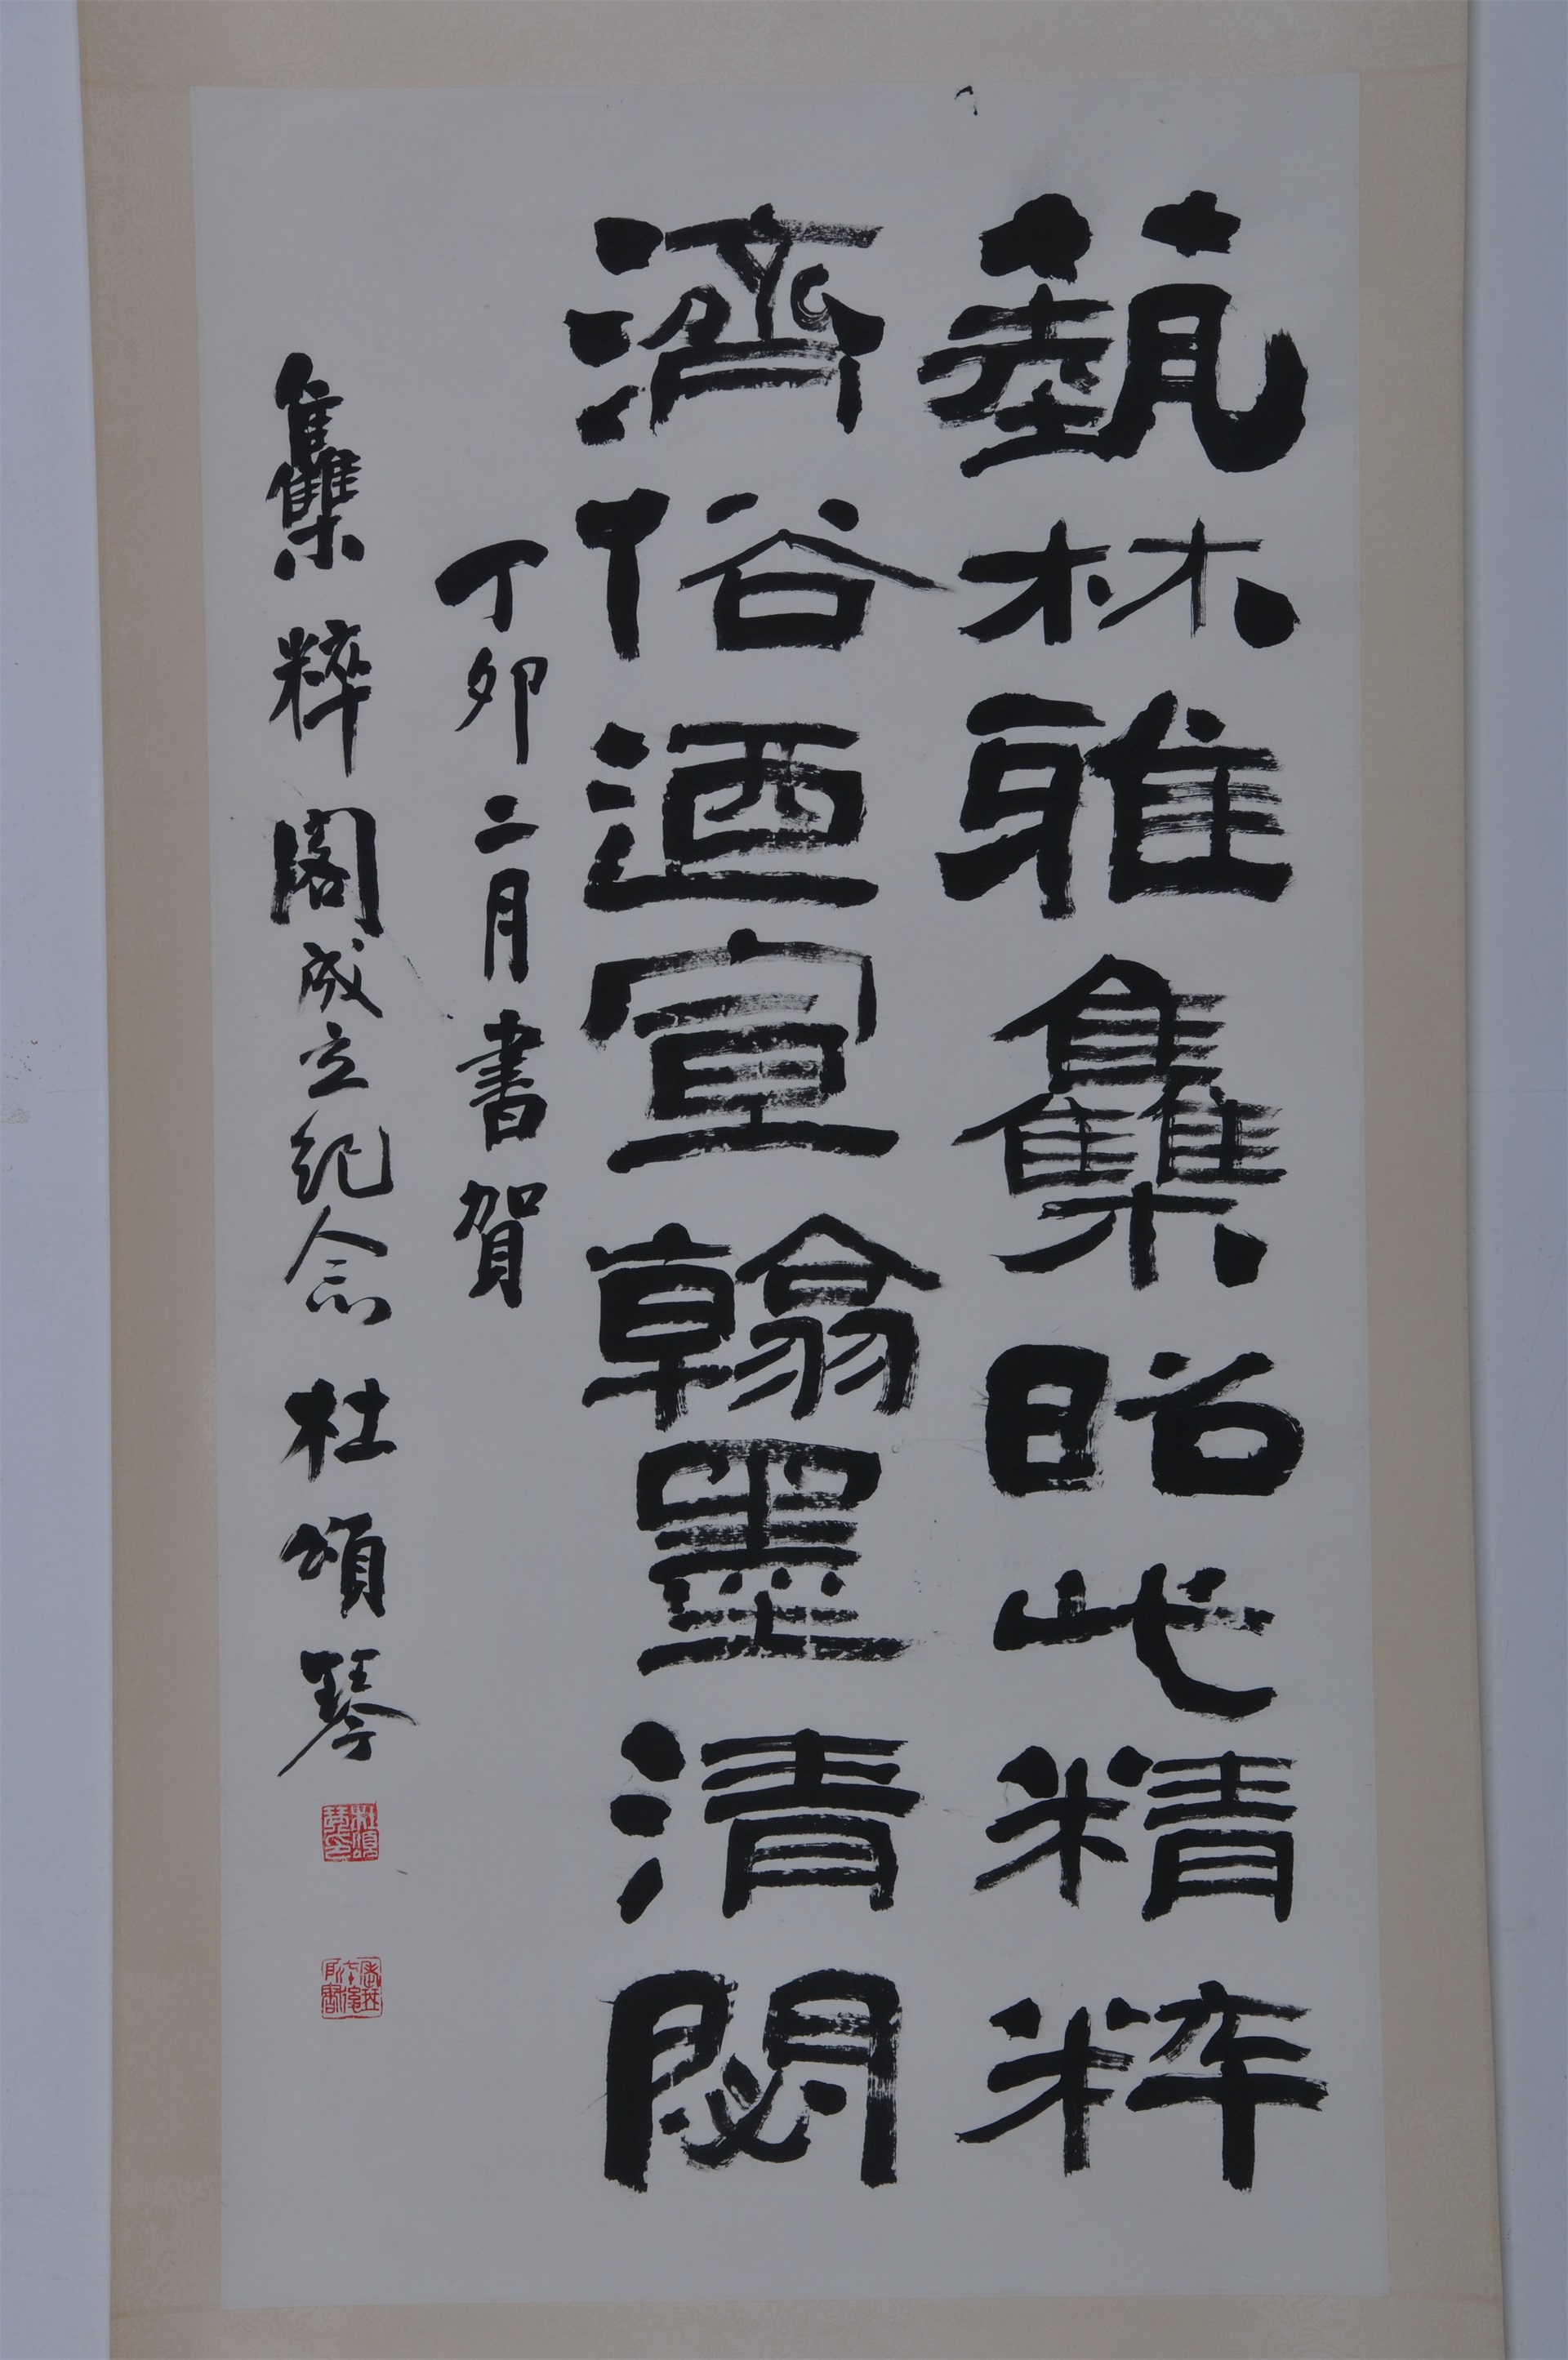 藝林雅雧昭此精粹
濟俗迺宣翰墨清閟
丁卯二月書賀
雧粹閣成立紀念 杜頌琴